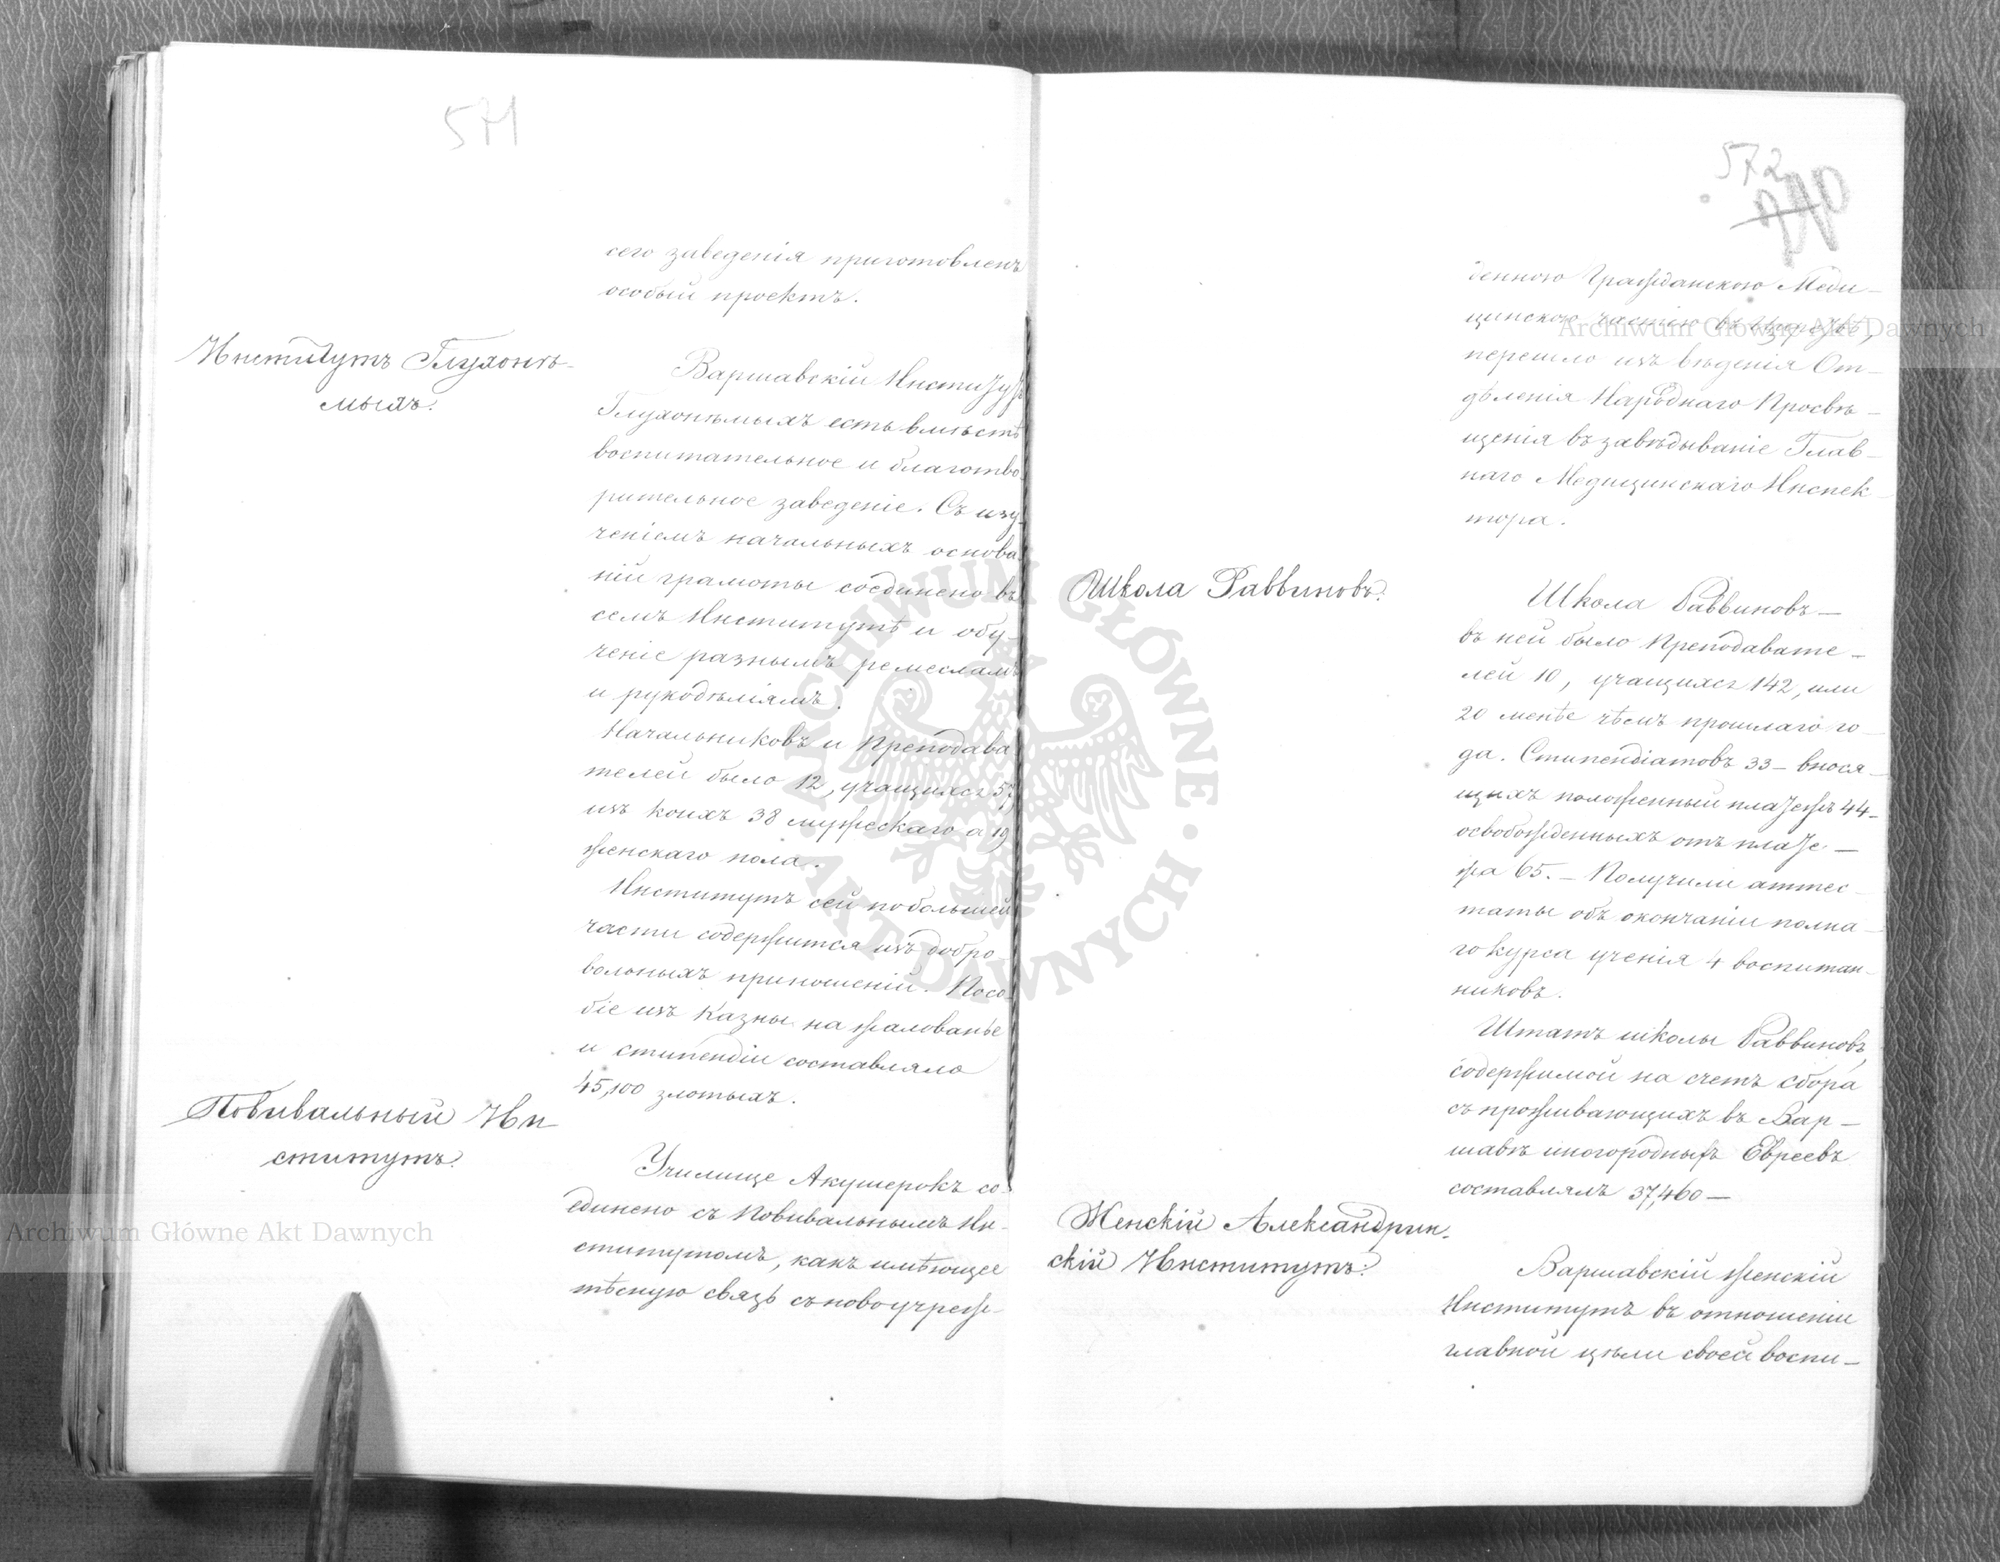 571
сего заведенія приготовленъ
особый проектъ.
Институтъ Глухонѣ-
мыхъ.
Варшавскій Институтъ
Глухонѣмыхъ есть вмѣстѣ
воспитательное и благотво-
рительное заведеніе. Съ изу-
ченіемъ начальныхъ основа-
ній грамоты соединено въ
семъ Институтѣ и обу-
ченіе разнымъ ремесламъ
и рукодѣліямъ.
Начальниковъ и Преподава
телей было 12, учащихся 57,
изъ коихъ 38 мужескаго а 19
женскаго пола.
Институтъ сей по большей
части содержится изъ добро-
вольныхъ приношеній. Посо-
біе изъ Казны на жалованье
и стипендіи составляло
45,100 злотыхъ.
Повивальный Ин
ститутъ.
Училище Акушерокъ со-
единено съ Повивальнымъ Ин-
ститутомъ, какъ имѣющее
тѣсную связь съ новоучреж-
572
240
денною Гражданскою Меди-
цинскою частію въ Царствѣ,
перешло изъ вѣденія От-
дѣленія Народнаго Просвѣ-
щенія въ завѣдываніе Глав-
наго Медицинскаго Инспек-
тора.
Школа Раввиновъ.
Школа Раввиновъ —
въ ней было Преподавате-
лей 10, учащихся 142, или
20 менѣе чѣмъ прошлаго го-
да. Стипендіатовъ 33 — внося-
щихъ положенный платежъ 44 —
освобожденныхъ отъ плате-
жа 65. — Получили аттес-
таты объ окончаніи полна-
го курса ученія 4 воспитан-
никовъ.
Штатъ школы Раввиновъ,
содержимой на счетъ сбора
съ проживающихъ въ Вар-
шавѣ иногородныхъ Евреевъ
составлялъ 37,460 —
Женскій Александрин-
скій Институтъ.
Варшавскій женскій
Институтъ въ отношеніи
главной цѣли своей воспи-
Archiwum Główne Akt Dawnych
Archiwum Główne Akt Dawnych
ARCHIWUM GŁÓWNE AKT DAWNYCH